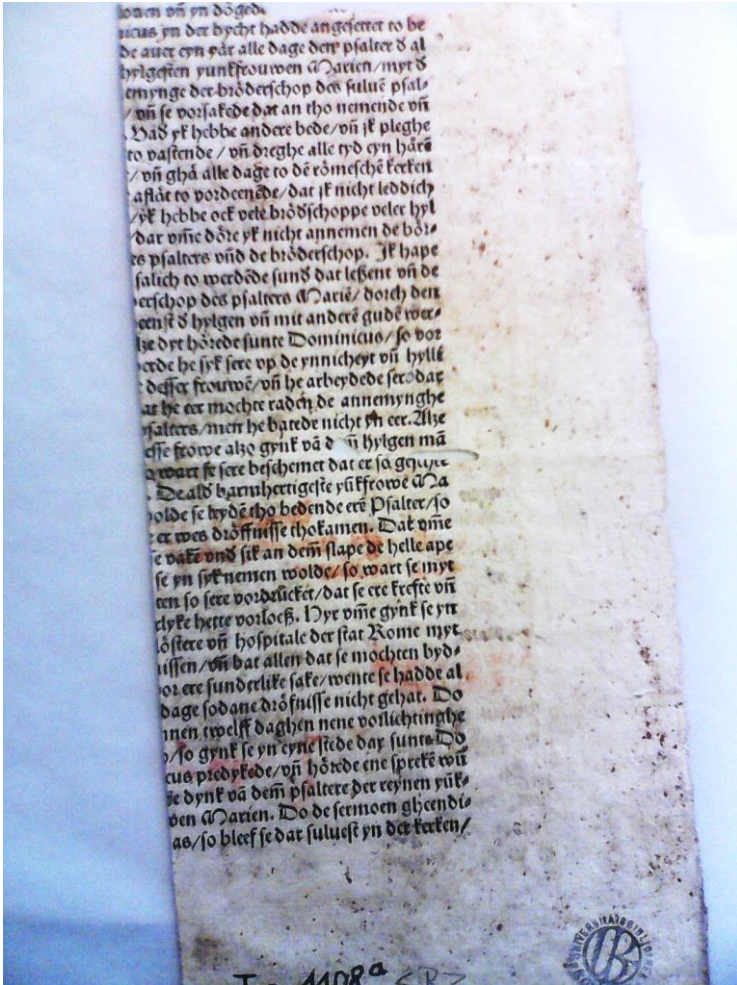 louen vn̄ yn döged
icus yn der bycht hadde angesettet to be
de auer eyn yår alle dage dem psalter d̕ al
hylgesten yunkfrouwen Marien/myt d̕
emynge der bröderschop des suluē psal-
/ vn̄ se vorsakede dat an tho nemende vn̄
. Vad̕ yk hebbe andere bede/vn̄ jk pleghe
to vastende / vn̄ dreghe alle tyd eyn hårē
/ vn̄ ghå alle dage to dē römeschē kerken
aflåt to vordeenēde/dat jk nicht leddich
/yk hebbe ock vele bröd̕schoppe veler hyl
/dar vm̄e döre yk nicht annemen de bör-
es psalters vnd̄ de bröderschop. Jk hape
salich to werdēde sund̕ dat leßent vn̄ de
erschop des psalters Mariē/ dorch den
eenst d̕ hylgen vn̄ mit anderē gudē wer-
lze dyt hörede sunte Dominicus/ so vor
erde he syk sere vp de ynnicheyt vn̄ hyllē
desser frouwē/vn̄ he arbeydede sere dar
at he eer mochte raden de annemynghe
psalters/men he batede nicht yn eer. Alze
esse frowe alzo gynk vā d vn̄ hylgen mā
o wart se sere beschemet dat er so
. De ald̕ barmhertigeste yūkfrowe Ma
olde se leydē tho bedende erē Psalter/so
er wes dröffnisse thokamen. Dat vm̄e
se vakē vnd̄ sik an dem̄ slape de helle ape
se yn syk nemen wolde/so wart se myt
ten so sere vordrücket/dat se ere krefte vn̄
rlyke hette vorloeß. Hyr vm̄e gynk se yn
löstere vn̄ hospitale der stat Rome myt
issen/vn̄ bat allen dat se mochten byd-
or ere sunderlike sake/wente se hadde al
dage sodane dröfnisse nicht gehat. Do
nnen twelff daghen nene vorlichtinghe
/so gynk se yn eyne stede dar sunte Do
cus predykede/vn̄ hörede ene sprekē wū
de dynk vā dem̄ psaltere der reynen yūk-
wen Marien. Do de sermoen gheendi-
as/so bleef se dat suluest yn der kerken/
1108ᵃ